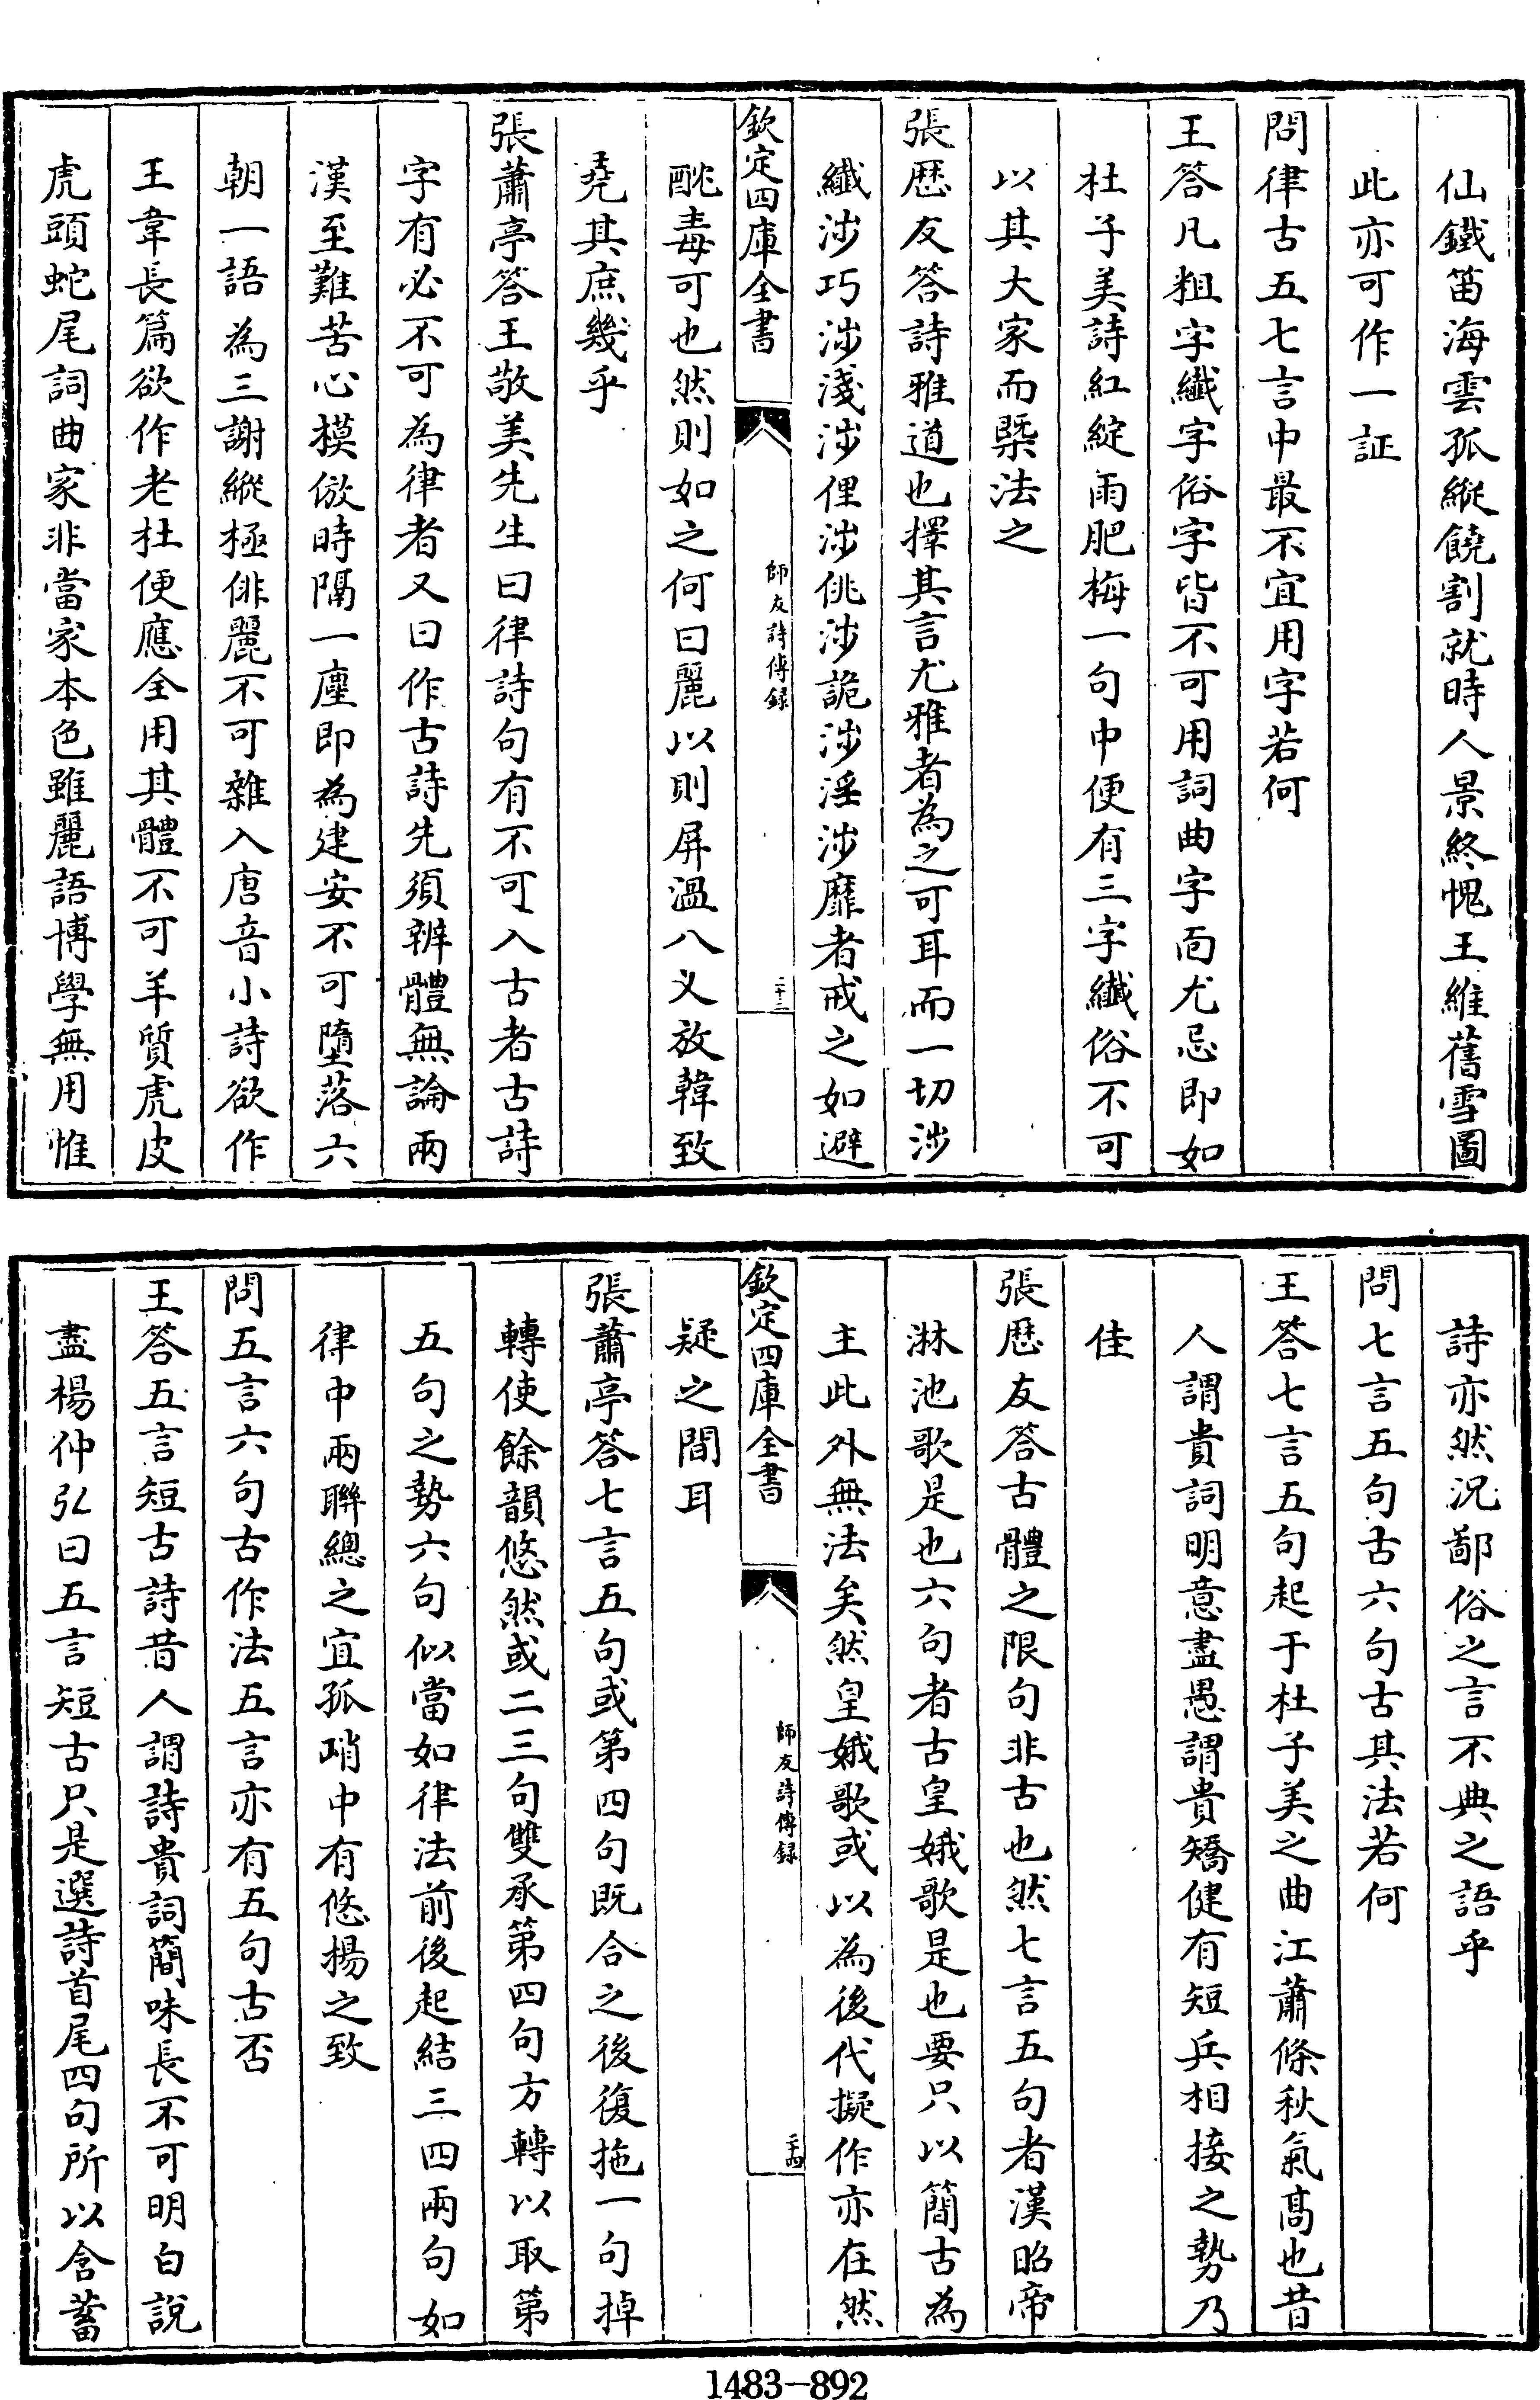 仙鐵笛海雲孤縱饒割就時人景終愧王維舊雪圖
此亦可作一証
問律古五七言中最不宜用字若何
王答凡粗字纖字俗字皆不可用詞曲字面尤忌即如
杜子美詩紅綻雨肥梅一句中便有三字纖俗不可
以其大家而槩法之
張歴友答詩雅道也擇其言尤雅者為之可耳而一切涉
纖涉巧涉淺涉俚涉佻涉詭涉淫涉靡者戒之如避
欽定四庫全書
師友詩傳録
二十三
酖毒可也然則如之何曰麗以則屏溫八乂放韓致
堯其庶幾乎
張蕭亭答王敬美先生曰律詩句有不可入古者古詩
字有必不可為律者又曰作古詩先須辨體無論兩
漢至難苦心摸倣時隔一塵即為建安不可墮落六
朝一語為三謝縱極俳麗不可雜入唐音小詩欲作
王韋長篇欲作老杜便應全用其體不可羊質虎皮
虎頭蛇尾詞曲家非當家本色雖麗語博學無用惟
詩亦然況鄙俗之言不典之語乎
問七言五句古六句古其法若何
王答七言五句起于杜子美之曲江蕭條秋氣髙也昔
人謂貴詞明意盡愚謂貴矯健有短兵相接之勢乃
佳
張歴友答古體之限句非古也然七言五句者漢昭帝
淋池歌是也六句者古皇娥歌是也要只以簡古為
主此外無法矣然皇娥歌或以為後代擬作亦在然
欽定四庫全書
師友詩傳録
二十四
疑之間耳
張蕭亭答七言五句或第四句既合之後復拖一句掉
轉使餘韻悠然或二三句雙承第四句方轉以取第
五句之勢六句似當如律法前後起結三四兩句如
律中兩聯總之宜孤峭中有悠揚之致
問五言六句古作法五言亦有五句古否
王答五言短古詩昔人謂詩貴詞簡味長不可明白說
盡楊仲弘曰五言短古只是選詩首尾四句所以含蓄
1483-892